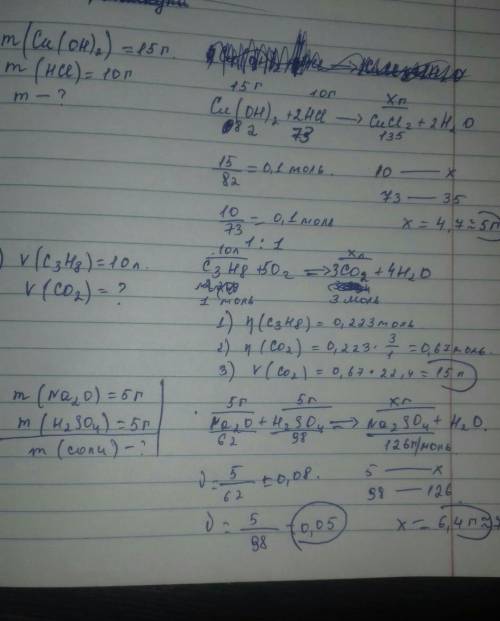 m(Cu(OH)₂)=15г.
m(HCl)=10г
m-?
15г 10г xг
Cu(OH)₂+2HCl → CuCl₂+2H₂O
82 73 135
15/82=0,1 моль. 10 — x
73 — 35
10/73=0,1 моль x=4,7≈5г
1:1
V(C₃H₈)=10л.
V(CO₂)=?
10л xл
C₃H₈+5O₂ ⟹ 3CO₂+4H₂O
1 моль 3 моль
1) η(C₃H₈)=0,223 моль
2) η(CO₂)=0,223·3/1=0,67 моль.
3) V(CO₂)=0,67·22,4=15л
m(Na₂O)=5г
m(H₂SO₄)=5г
m(соли)-?
5г 5г xг
Na₂O+H₂SO₄ ⟹ Na₂SO₄+H₂O.
62 98 126г/моль
ν=5/62=0,08. 5 — x
98 — 126
ν=5/98=0,05 x=6,4г≈